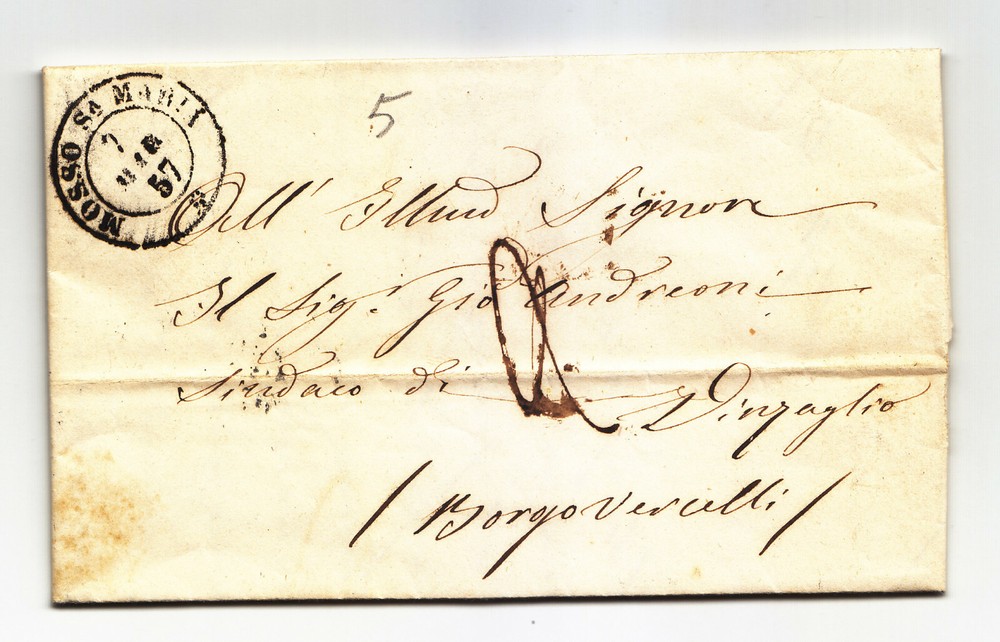 MOSSO Sa MARIA
7
MAR
57
5
All' Illmo Signore
Il Sig.r Gio Andreoni
Sindaco di Vinzaglio
/ Borgo Vercelli /